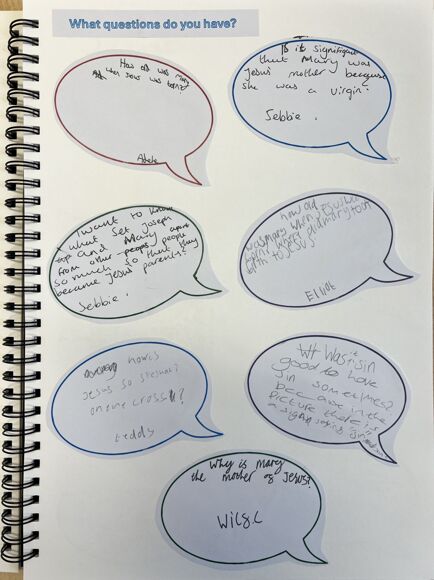 What questions do you have?
How old was mary
when Jesus was born?
Adele
Is it significant
that Mary was
Jesus' mother because
she was a virgin?
Sebbie.
I want to know
what set Joseph
and Mary apart
from other people
so much so that they
became Jesus' parents?
Sebbie.
how old
was mary when Jesus was
born? where did mary
birth to JESUS
Elliot
how is
Jesus so
on one cross?
teddy
Was it
good to have
sin sometimes?
because in the
picture there is
a sign saying sin
Why is mary
the mother of Jesus?